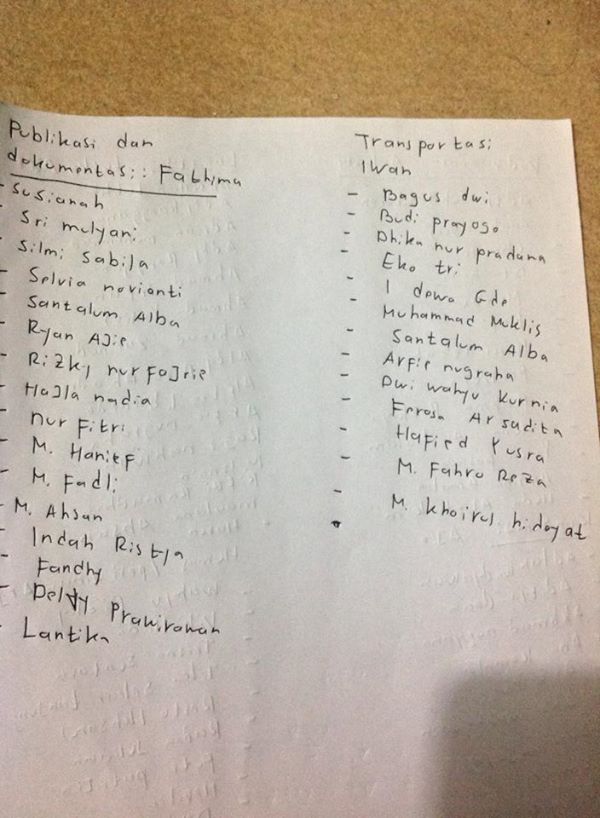 Publikasi dan
dokumentasi: Fathima
- Susianah
- Sri mulyani
- Silmi Sabila
- Selvia novianti
- Santalum Alba
- Ryan Ajie
- Rizky nur fajrie
- Hajla nadia
- nur Fitri
- M. Hanief
- M. Fadli
- M. Ahsan
- Indah Ristya
- Fandhy
- Deldy Prawirawan
- Lantika
Transportasi
Iwan
- Bagus dwi
- Budi prayogo
- Dhika nur pradana
- Eko tri
- I dewa Gde
- Muhammad Muklis
- Santalum Alba
- Arfie nugraha
- Dwi wahyu kurnia
- Ferosa Arsadita
- Hafied Yusra
- M. Fahru Reza
- M. Khoirul hidayat